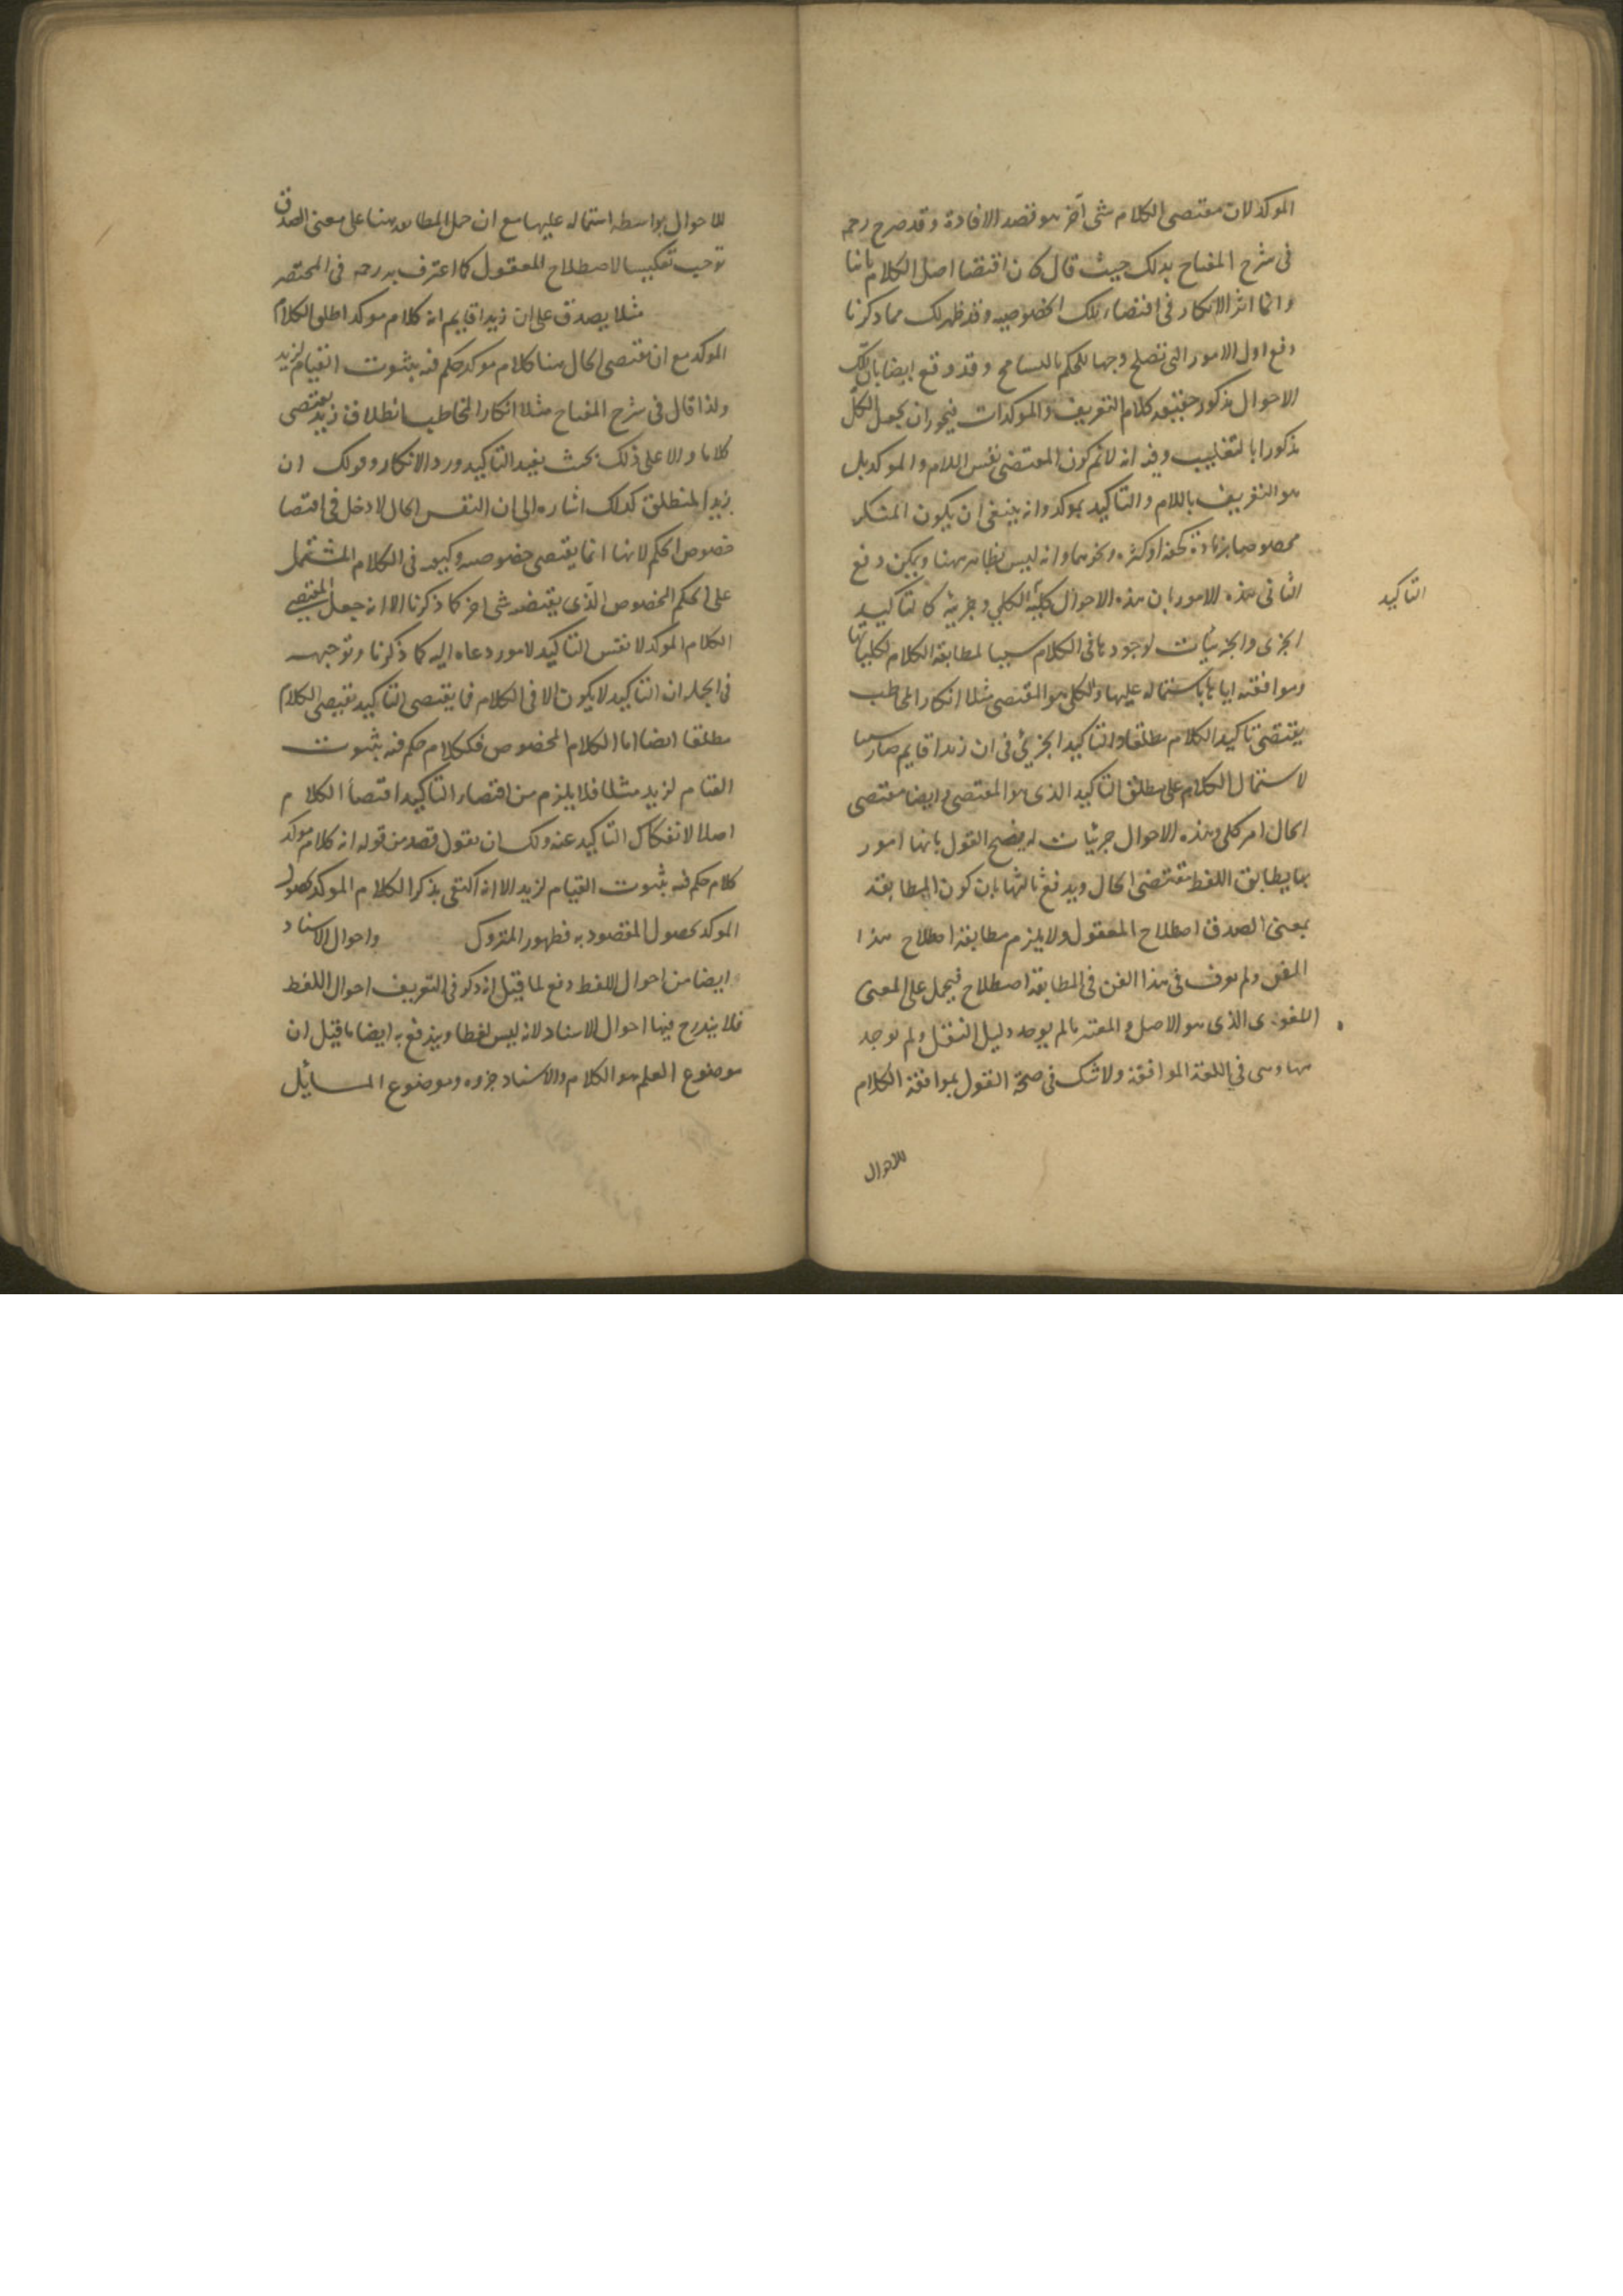 الموكد لان مقتضى الكلام شى آخر هو قصد الافادة وقد صرح رحمه
فى شرح المفتاح بذلك حيث قال كان اقتضا اصل الكلام ثابتا
وانما اثر الانكار فى اقتضاء تلك الخصوصيه وقد ظهر لك مما ذكرنا
دفع اول الامور التى تصلح وجها للحكم بالتسامح وقد وقع ايضا بان تلك
الاحوال مذكور حقيقه كلام التعريف والموكدات فيجوز ان يجعل الكل
مذكورا بالتغليب وفيه انه لا نم كون المقتضى نفس اللام والموكد بل
هو التعريف باللام والتاكيد بموكد وانه ينبغى ان يكون المنكر
مخصوصا بزيادة ونحوهما وانه ليس بظاهر ههنا ويمكن دفع
الثانى هذه الامور بان هذه الاحوال كليه الكلى وجزئيه كالتاكيد
التاكيد
الجزى والجزئيات لوجودها فى الكلام سببا لمطابقة الكلام لكلياتها
وموافقته اياها باشتماله عليها والكلى هو المقتضى مثلا انكار المخاطب
يقتضى تاكيد الكلام مطلقا والتاكيد الجزئى فى ان زيدا قايم صار سببا
لاشتمال الكلام على مطلق التاكيد الذى هو المقتضى وايضا مقتضى
الحال امر كلى وهذه الاحوال جزئيات له يصح القول بانها امور
بها يطابق اللفظ مقتضى الحال ويدفع ثالثها بان كون المطابقة
بمعنى الصدق اصطلاح المعقول ولا يلزم مطابقة اصطلاح هذا
الفن ولم يعرف فى هذا الفن فى المطابقة اصطلاح فيحمل على المعنى
اللغوى الذى هو الاصل والمعتبر ما لم يوجد دليل النقل ولم يوجد
ههنا وهى فى اللغة الموافقة ولا شك فى صحة القول بموافقة الكلام
للاحوال
للاحوال بواسطه اشتماله عليها مع ان حمل المطابقه هنا على معنى الصدق
توجب تعكيسا لاصطلاح المعقول كما اعترف به رحمه فى المختصر
مثلا يصدق على ان زيدا قايم انه كلام موكد اطلق الكلام
الموكد مع ان مقتضى الحال هنا كلام موكد حكم فيه بثبوت القيام لزيد
ولذا قال فى شرح المفتاح مثلا انكار المخاطب انطلاق زيد يقتضى
كلاما دالا على ذلك بحيث يفيد التاكيد ورد الانكار وقولك ان
زيدا لمنطلق كذلك اشاره الى ان النفس الحال لا دخل فى اقتضا
خصوص الحكم لانها انما يقتضى خصوصيه وكيفيه فى الكلام المشتمل
على الحكم المخصوص الذى يقتضيه شى اخر كما ذكرنا الا انه جعل المقتضى
الكلام الموكد لا نفس التاكيد لامور دعاه اليه كما ذكرنا وتوجيهه
فى الجمله ان التاكيد لا يكون الا فى الكلام فما يقتضى التاكيد يقتضى الكلام
مطلقا ايضا اما الكلام المخصوص فككلام حكم فيه بثبوت
القيام لزيد مثلا فلا يلزم من اقتضاء التاكيد اقتضا الكلام
اصلا لانفكاك التاكيد عنه ولك ان تقول قصد من قوله انه كلام موكد
كلام حكم فيه بثبوت القيام لزيد الا انه اكتفى بذكر الكلام الموكد لحصول
الموكد بحصول المقصود به فظهور المتروك واحوال الاسناد
ايضا من احوال اللفظ دفع لما قيل انه ذكر فى التعريف احوال اللفظ
فلا يندرج فيها احوال الاسناد لانه ليس لفظا ويندفع به ايضا ما قيل ان
موضوع العلم هو الكلام والاسناد جزوه وموضوع المسائل